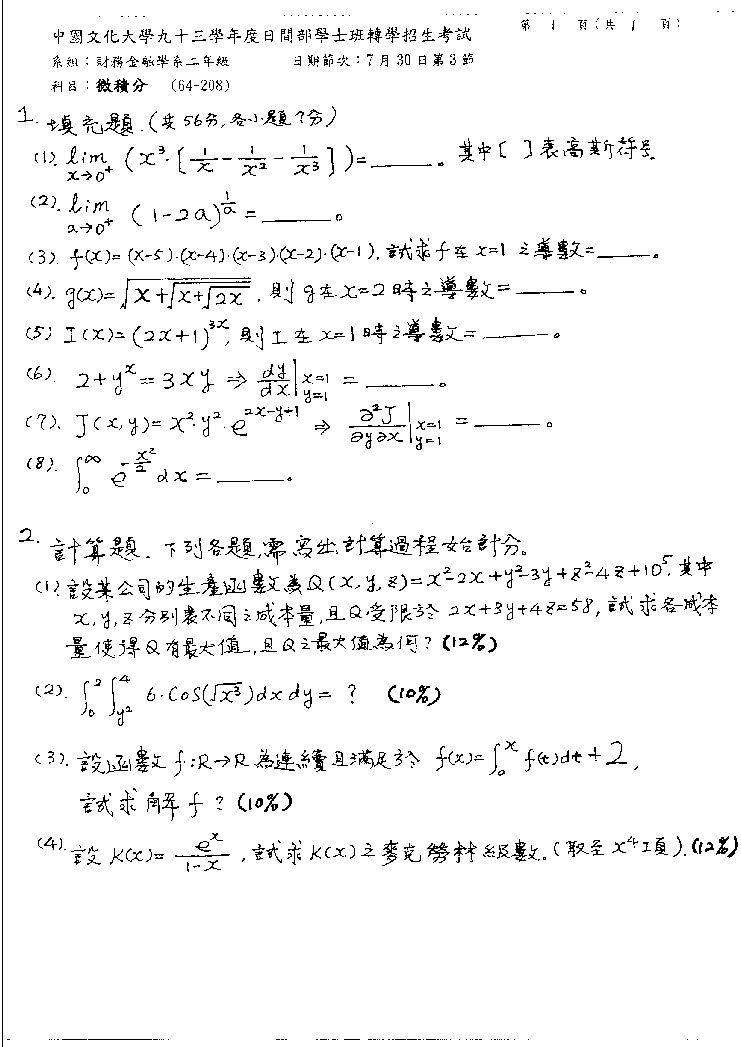 中國文化大學九十三學年度日間部學士班轉學招生考試
第 1 頁(共 1 頁)
系組：財務金融學系二年級 日期節次：7月30日第3節
科目：微積分 (64-208)
1. 填充題.(共56分,各小題7分)
(1). lim_{x→0⁺} (x³·[1/x - 1/x² - 1/x³])=____。其中[ ]表高斯符号
(2). lim_{a→0⁺} (1-2a)^{1/a} =____。
(3). f(x)=(x-5)·(x-4)·(x-3)·(x-2)·(x-1),試求f在x=1之導數=____。
(4). g(x)=√(x+√(x+√(2x))), 則g在x=2時之導數=____。
(5) I(x)=(2x+1)^{3x},則I在x=1時之導數=____。
(6). 2+y^x=3xy ⇒ dy/dx|_{x=1, y=1} =____。
(7). J(x,y)=x²·y²·e^{2x-y+1} ⇒ ∂²J/∂y∂x|_{x=1, y=1} =____。
(8). ∫₀^∞ e^{-x²/2} dx=____。
2. 計算題. 下列各題,需寫出計算過程始計分。
(1)設某公司的生產函數為Q(x,y,z)=x²-2x+y²-3y+z²-4z+10⁵,其中
x,y,z分別表不同之成本量,且Q受限於 2x+3y+4z=58,試求各成本
量使得Q有最大值,且Q之最大值為何?(12%)
(2). ∫₀² ∫_{y²}^4 6·cos(√x³)dxdy= ? (10%)
(3). 設函數 f:R→R 為連續且滿足於 f(x)=∫₀^x f(t)dt+2,
試求解 f ? (10%)
(4). 設 K(x)= e^x/(1-x) ,試求K(x)之麥克勞林級數.(取至x⁴項).(12%)